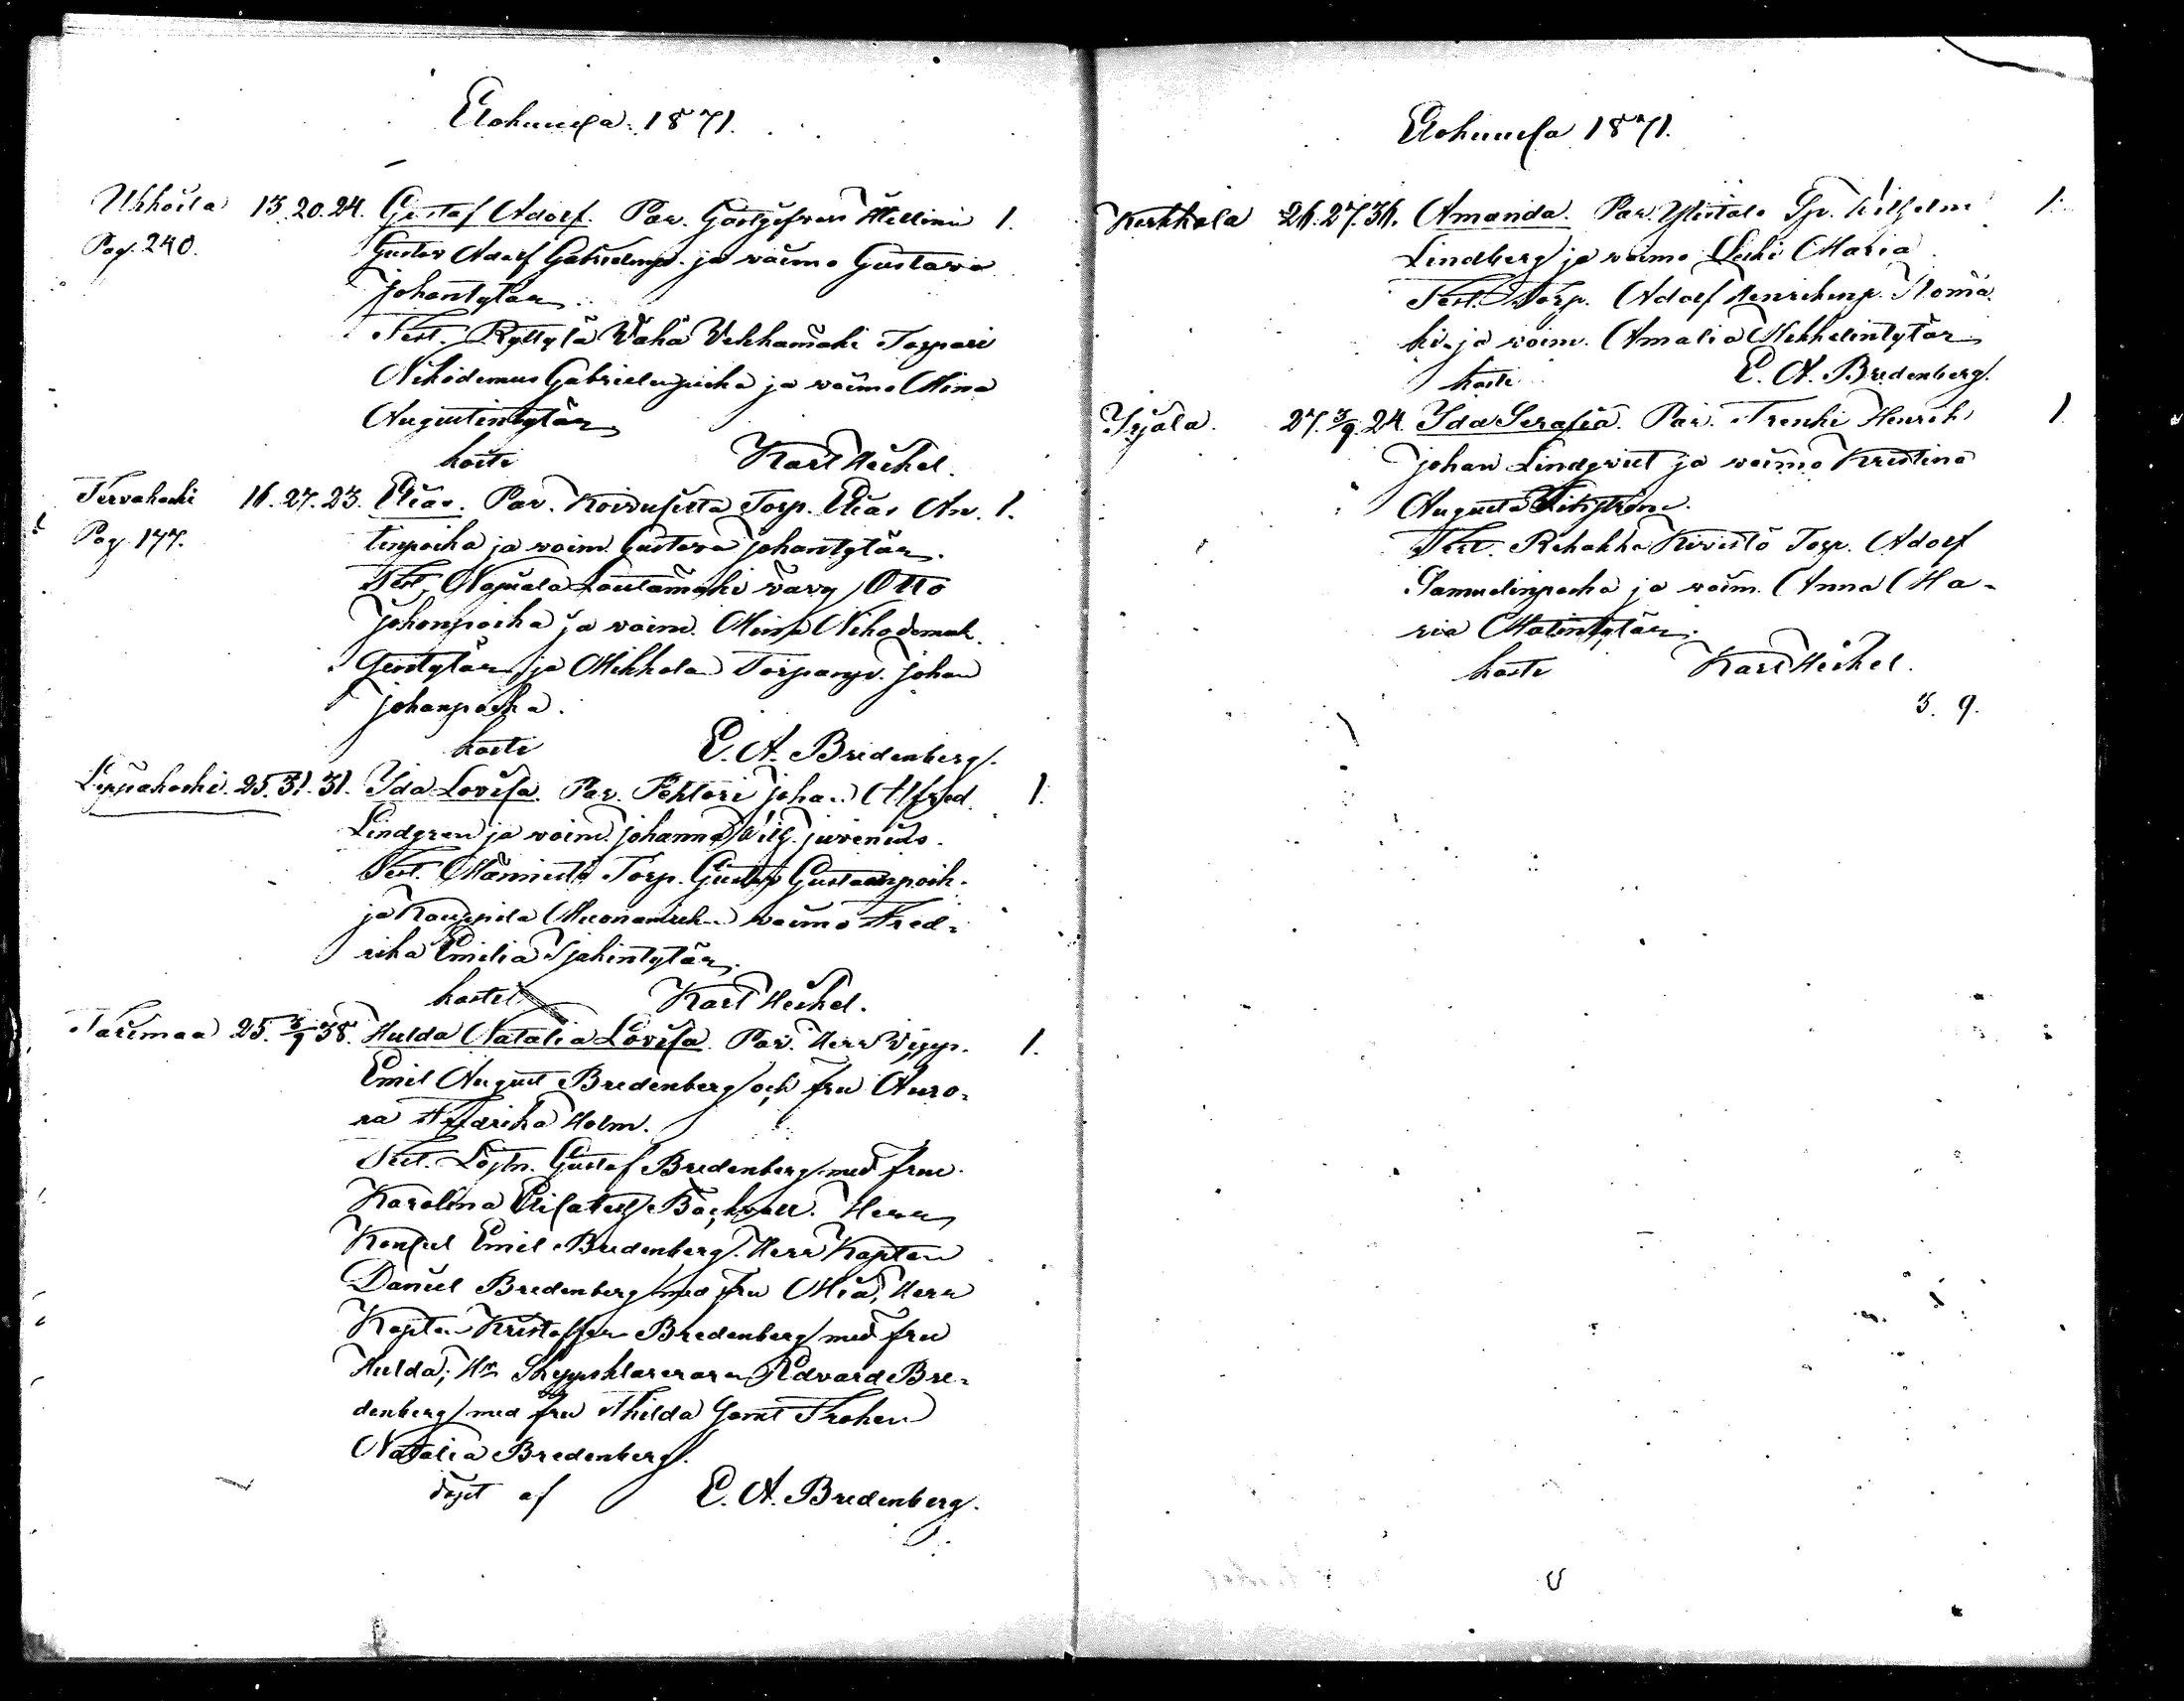 Elokuussa 1871.
Uhkoila 13. 20. 24. Gustaf Adolf. Par. Gästgifvari Hellini 1.
Pag. 240. Gustav Adolf Gabrielinp. ja vaimo Gustava
Johantytär
Test. Ryttylä Vähä Vehkamäki Torpari
Nikodemus Gabrielinpoika ja vaimo Mina
Augustintytär
kaste Karl Heikel.
Tervakoski 16. 27. 23. Elias. Par. Torp. Elias An. 1.
Pag. 177. tinpoika ja vaim. Gustava Johantytär.
Test. Napiala Lautamäki Otto
Johanpoika ja vaim. Miina Nikodemuk
sentytär ja Mikkola Torpanp. Johan
Johanpoika.
kaste E. A. Bredenberg.
Leppäkoski. 25. 31. 31. Ida Lovisa. Par. Pehtori Johan Alfred 1.
Lindgren ja vaim. Johanna Wilh. Juvenius.
Test. Mannisto Torp. Gustaf Gustavinpoik.
ja Kauppila Muonamieh. vaimo Fred-
rika Emilia Isakintytär.
kaste Karl Heikel.
Tarimaa 25. 3/9 38. Hulda Natalia Lovisa. Par. Herr 1.
Emil August Bredenberg och fru Auro-
ra Fredrika Holm.
Test. Löjtn. Gustaf Bredenberg med fru
Karolina Elisabeth Herr
Konsul Emil Bredenberg. Herr Kapten
Daniel Bredenberg med fru Mia, Herr
Kapten Kristoffer Bredenberg med fru
Hulda; Hr Skeppsklareraren Edvard Bre-
denberg med fru Thilda samt Fröken
Natalia Bredenberg.
döpt af E. A. Bredenberg.
Elokuussa 1871.
Kerkkola 26. 27. 36. Amanda. Par. Ylistalo Wilhelm 1.
Lindberg ja vaimo Maria
Test. Torp. Adolf Henrikinp.
ki ja vaim. Amalia Mikkelintytär
kaste E. A. Bredenberg.
Irjala. 27. 3/9. 24. Ida Serafia. Par. Trenki Henrik 1.
Johan Lindqvist ja vaimo Kristina
Augusta
Test. Rehakka Kivistö Torp. Adolf
Samuelinpoika ja vaim. Anna Ma-
ria Matintytär.
kaste Karl Heikel.
3. 9.